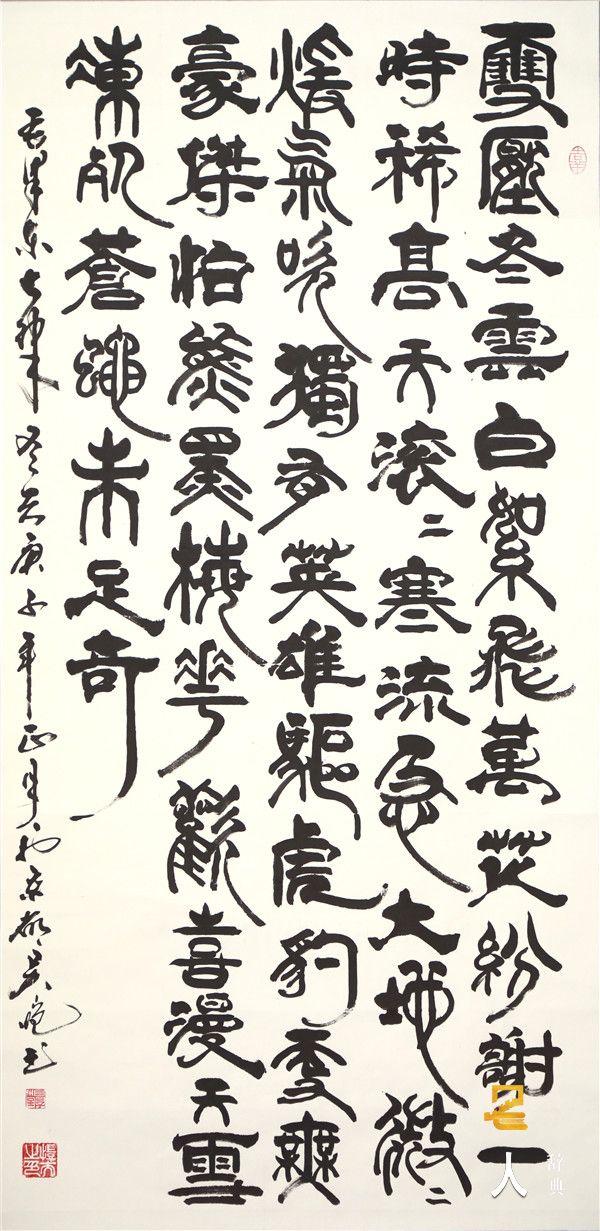 雪壓冬雲白絮飛萬花紛謝一
時稀高天滾二寒流急大地微二
煖氣吹獨有英雄驅虎豹更無
豪傑怕熊羆梅花歡喜漫天雪
凍死蒼蠅未足奇
毛澤東七律冬雲庚子年正月於京都吳
名人
辞典